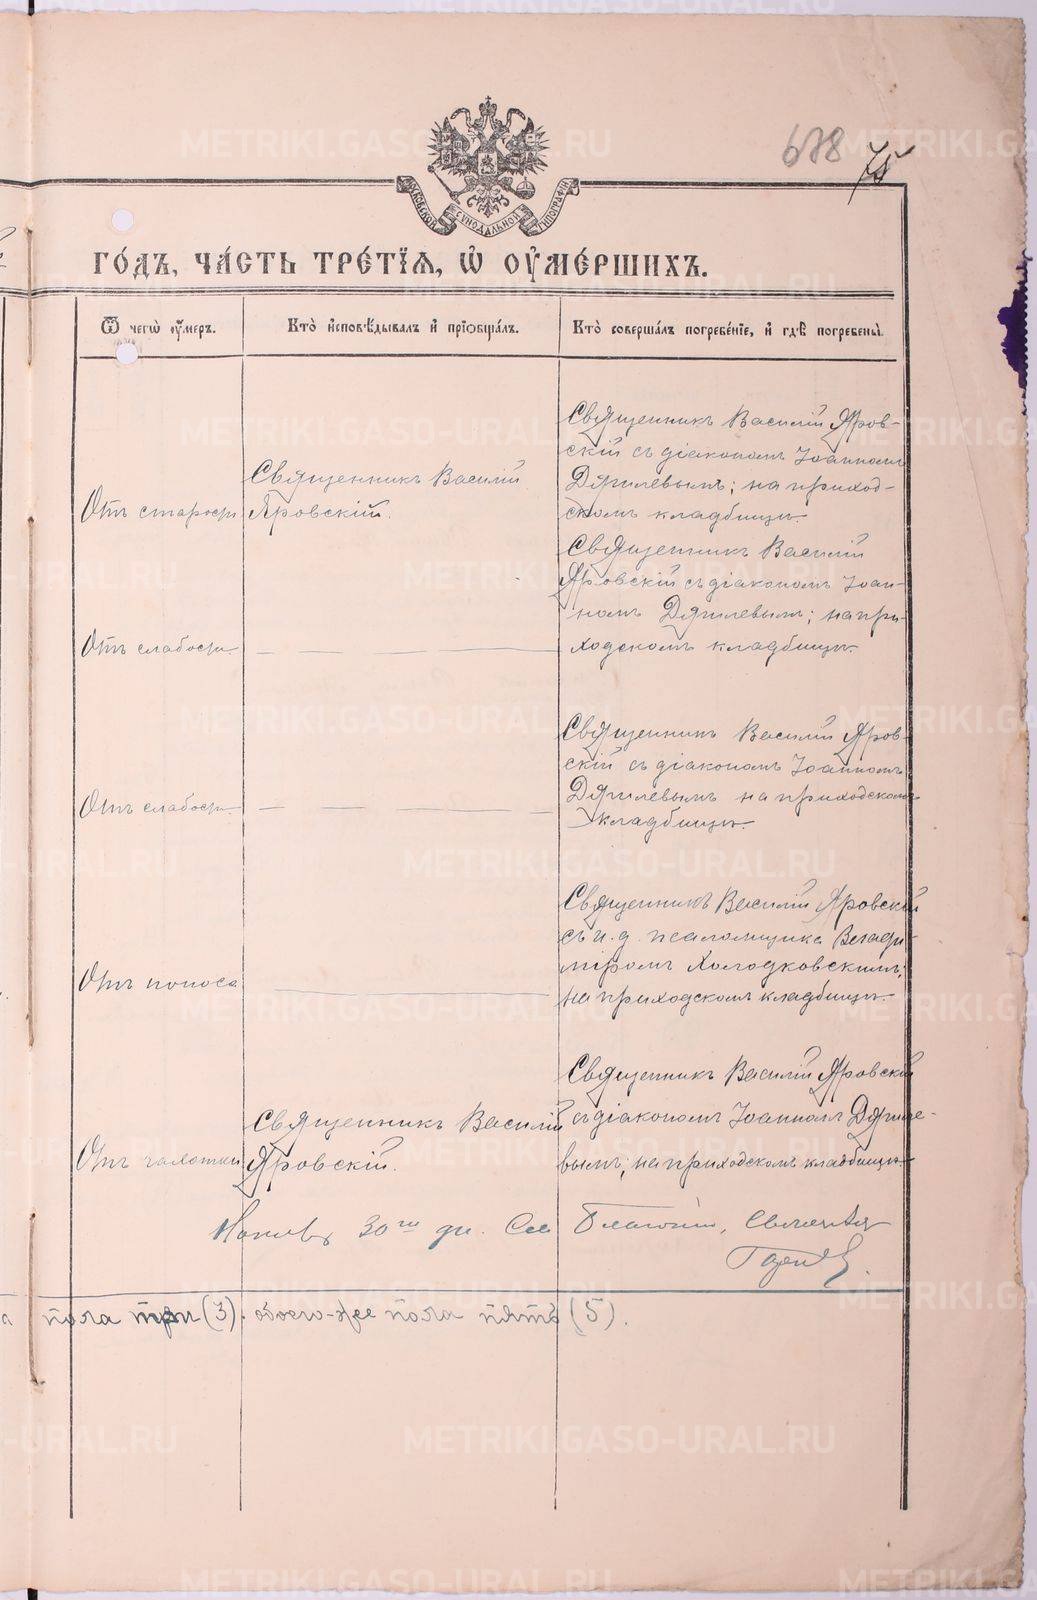 678
75
МОСКОВСКОЙ СѴНОДАЛЬНОЙ ТИПОГРАФІИ
ГО́ДЪ, ЧА́СТЬ ТРЕ́ТЇѦ, Ѡ҆ ОУ҆МЕ́РШИХЪ.
Ѿ чегѡ̀ оу҆́меръ.
Кто̀ и҆сповѣ́дывалъ и҆ прїѻбща́лъ.
Кто̀ соверша́лъ погребе́нїе, и҆ гдѣ̀ погребены̀.
Отъ старости
Священникъ Василій
Яровскій.
Священникъ Василій Яров-
скій съ діакономъ Іоанномъ
Дягилевымъ; на приход-
скомъ кладбищѣ.
Отъ слабости.
Священникъ Василій
Яровскій съ діакономъ Іоан-
номъ Дягилевымъ; на при-
ходскомъ кладбищѣ.
Отъ слабости.
Священникъ Василій Яров-
скій съ діакономъ Іоанномъ
Дягилевымъ на приходскомъ
кладбищѣ.
Отъ поноса
Священникъ Василій Яровскій
съ и. д. псаломщика Влади-
міромъ Холодковскимъ;
на приходскомъ кладбищѣ.
Отъ чахотки
Священникъ Василій
Яровскій.
Священникъ Василій Яровскій
съ діакономъ Іоанномъ Дягиле-
вымъ; на приходскомъ кладбищѣ.
30го
пола три (3). обоего-же пола пять (5).
METRIKI.GASO-URAL.RU